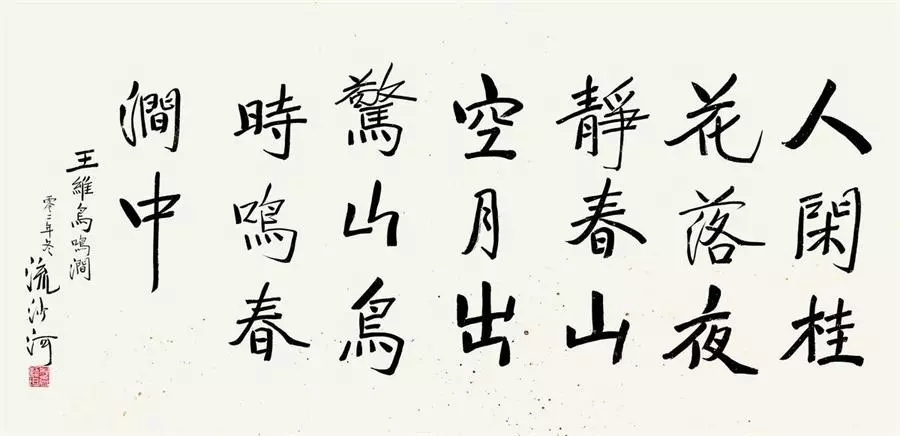 人閑桂
花落夜
靜春山
空月出
驚山鳥
時鳴春
澗中
王維鳥鳴澗
零二年冬
流沙河